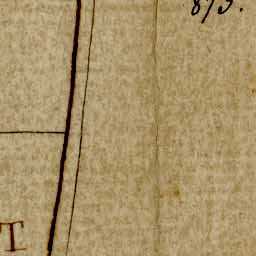 873.
T